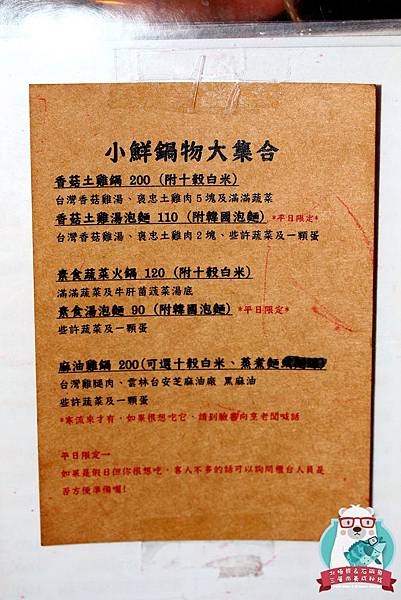 小鮮鍋物大集合
香菇土雞鍋 200 (附十穀白米)
台灣香菇雞湯、褒忠土雞肉5塊及滿滿蔬菜
香菇土雞湯泡麵 110 (附韓國泡麵) *平日限定*
台灣香菇雞湯、褒忠土雞肉2塊、些許蔬菜及一顆蛋
素食蔬菜火鍋 120 (附十穀白米)
滿滿蔬菜及牛肝菌蔬菜湯底
素食湯泡麵 90 (附韓國泡麵) *平日限定*
些許蔬菜及一顆蛋
麻油雞鍋 200(可選十穀白米、蒸煮麵
台灣雞腿肉、雲林台安芝麻油廠 黑麻油
些許蔬菜及一顆蛋
*寒流來才有，如果很想吃它，請到臉書向烹老闆喊話
平日限定－
如果是假日但你很想吃，客人不多的話可以詢問櫃台人員是
否方便準備喔!